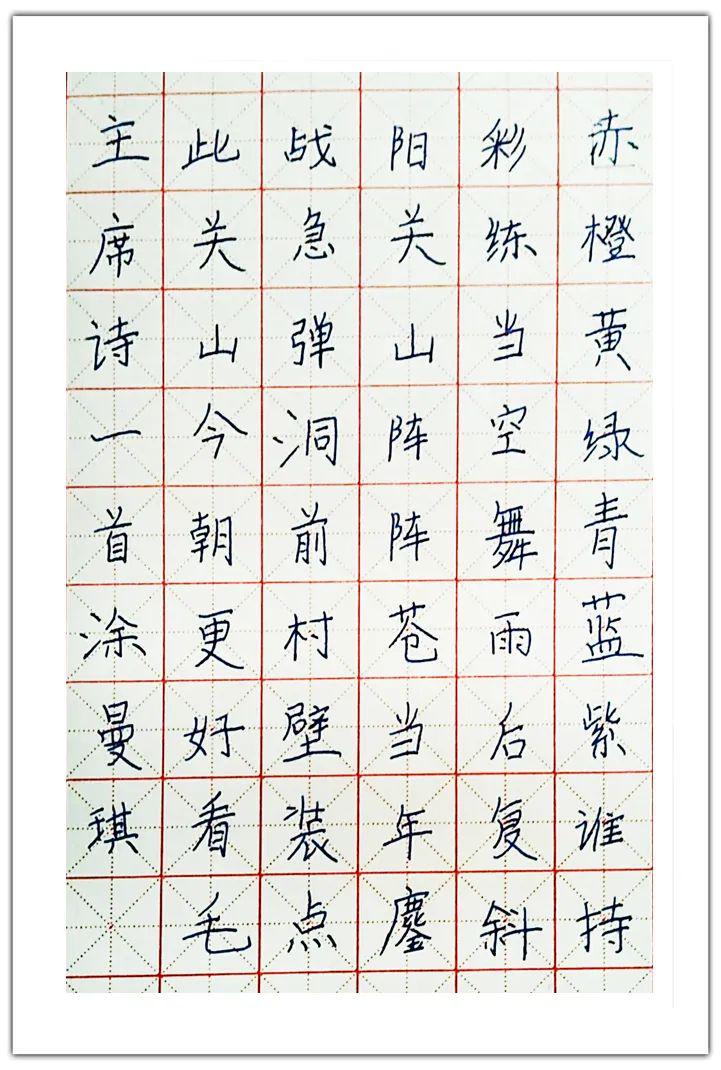 赤橙黄绿青蓝紫谁持
彩练当空舞雨后复斜
阳关山阵阵苍当年鏖
战急弹洞前村壁装点
此关山今朝更好看毛
主席诗一首涂曼琪